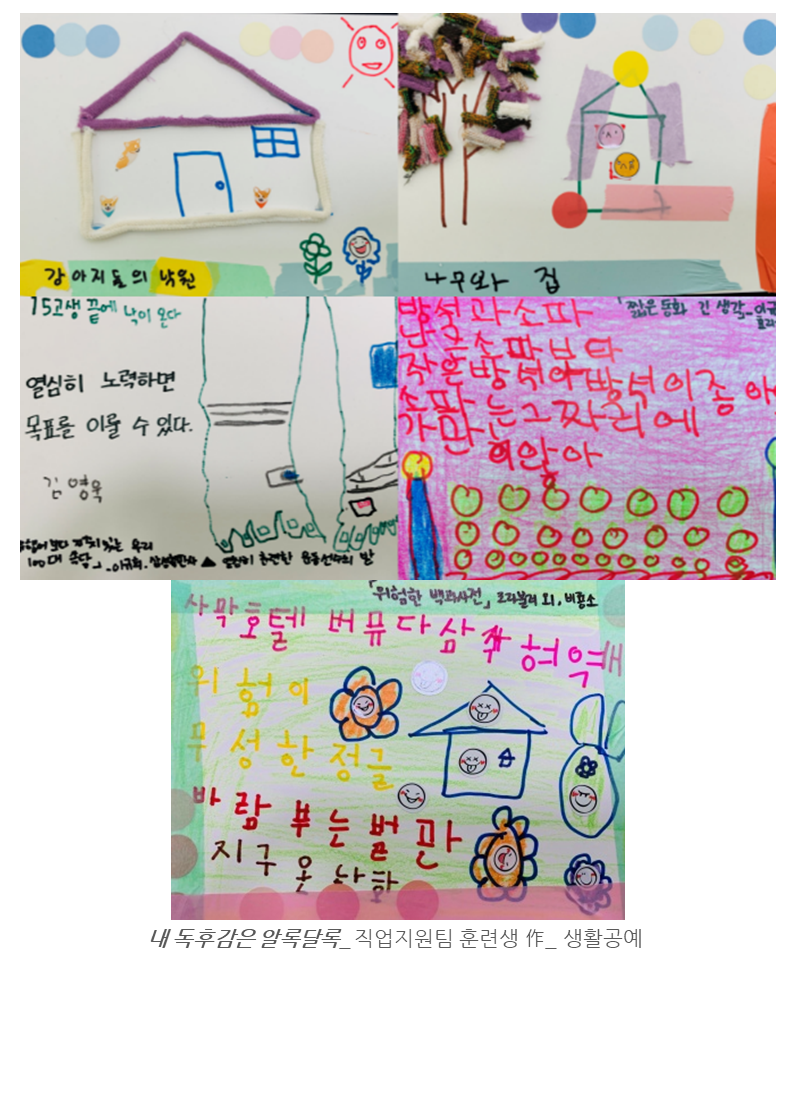 강아지들의 낙원
나무와 집
15고생 끝에 낙이 온다
열심히 노력하면
목표를 이룰 수 있다.
김영욱
재미있는 우리
100대 속담」_이규희.삼성출판사 ▲ 열심히 훈련한 운동선수의 발
「짧은 동화 긴 생각_이규
방석과 소파
난 소파보다
작은방석아 방석이 좋아
소파는 그 자리에
가만히 앉아
「위험한 백과사전」 로라 불러 외, 비룡소
사막호텔 버뮤다삼각 혀역
위험이
무성한 정글
바람 부는 벌판
지구온난화
내 독후감은 알록달록_ 직업지원팀 훈련생 作_ 생활공예